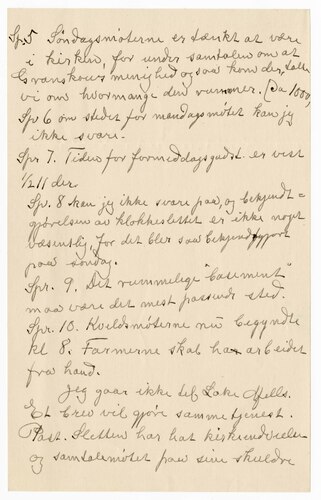 Sp. 5 Söndagsmöterne er tænkt at være
i kirken, for under samtalen om at
Svanskours menighed og saa kom der, talte
vi om hvormange den rummer. (Ca 1000,
Spr 6 om stedet for mandagsmötet kan jeg
ikke svare.
Spr 7. Tiden for formiddagsgudst. er vist
1/2 11 der.
Spr. 8 kan jeg ikke svare paa, og bekjendt=
gjörelsen av klokkeslettet er ikke noget
væsentlig, for det bler saa bekjendtgjort
paa söndag.
Spr. 9. Det rummelige "basement"
maa være det mest passende sted.
Spr. 10. Kveldsmöterne må begyndte
kl 8. Farmerne skal ha arbeidet
fra haand.
Jeg gaar ikke til Lake Mills.
Et brev vil gjöre samme tjenest.
Past. Sletten har hat kirkeindvielse
og samtalemötet paa sine skuldre